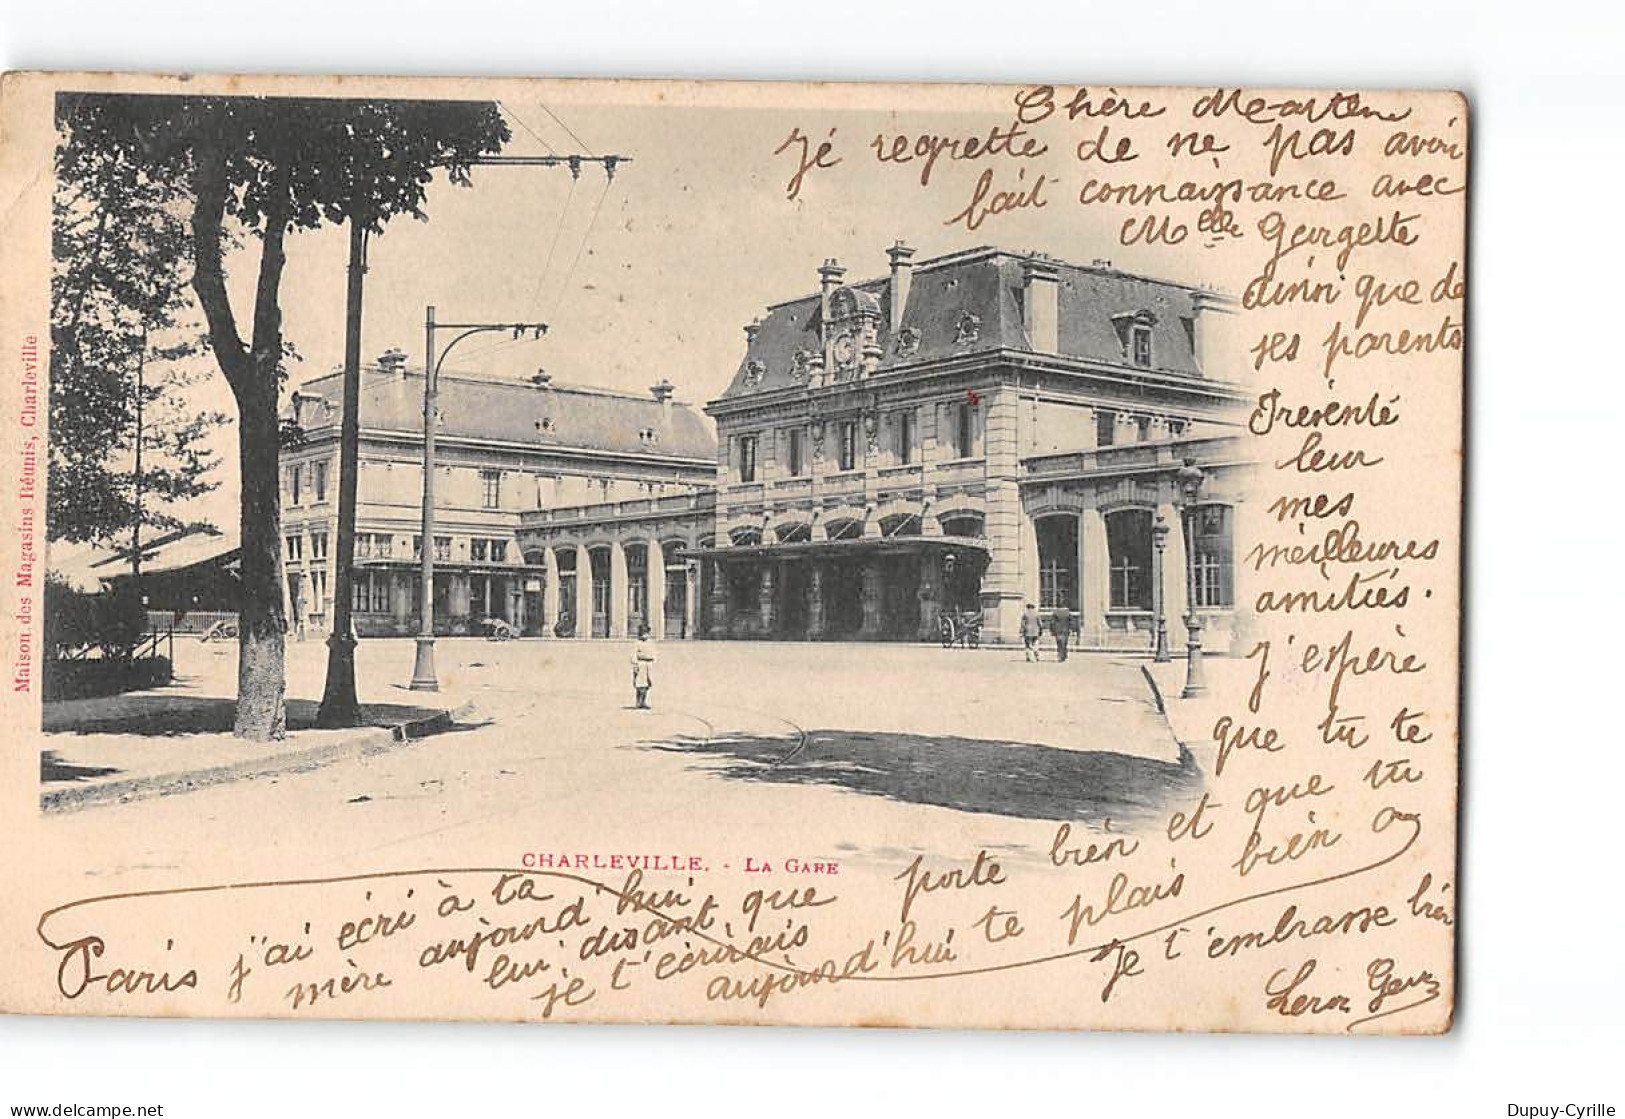 Chère
Jé regrette de ne pas avoir
fait connaissance avec
Melle Georgette
ainsi que de
ses parents
Présenté
leur
mes
meilleures
amitiés.
J'espère
que tu te
porte bien et que tu
te plais bien a
Paris j'ai écri à ta
mère aujourd'hui
lui disant que
je t'écrirais
aujourd'hui
Je t'embrasse bien
CHARLEVILLE. - LA GARE
Maison des Magasins Réunis, Charleville
delcampe.net
Dupuy-Cyrille